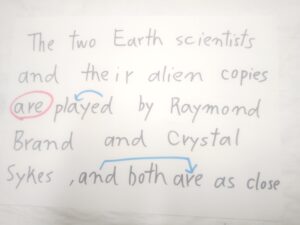 The two Earth scientists
and their alien copies
are played by Raymond
Brand and Crystal
Sykes , and both are as close